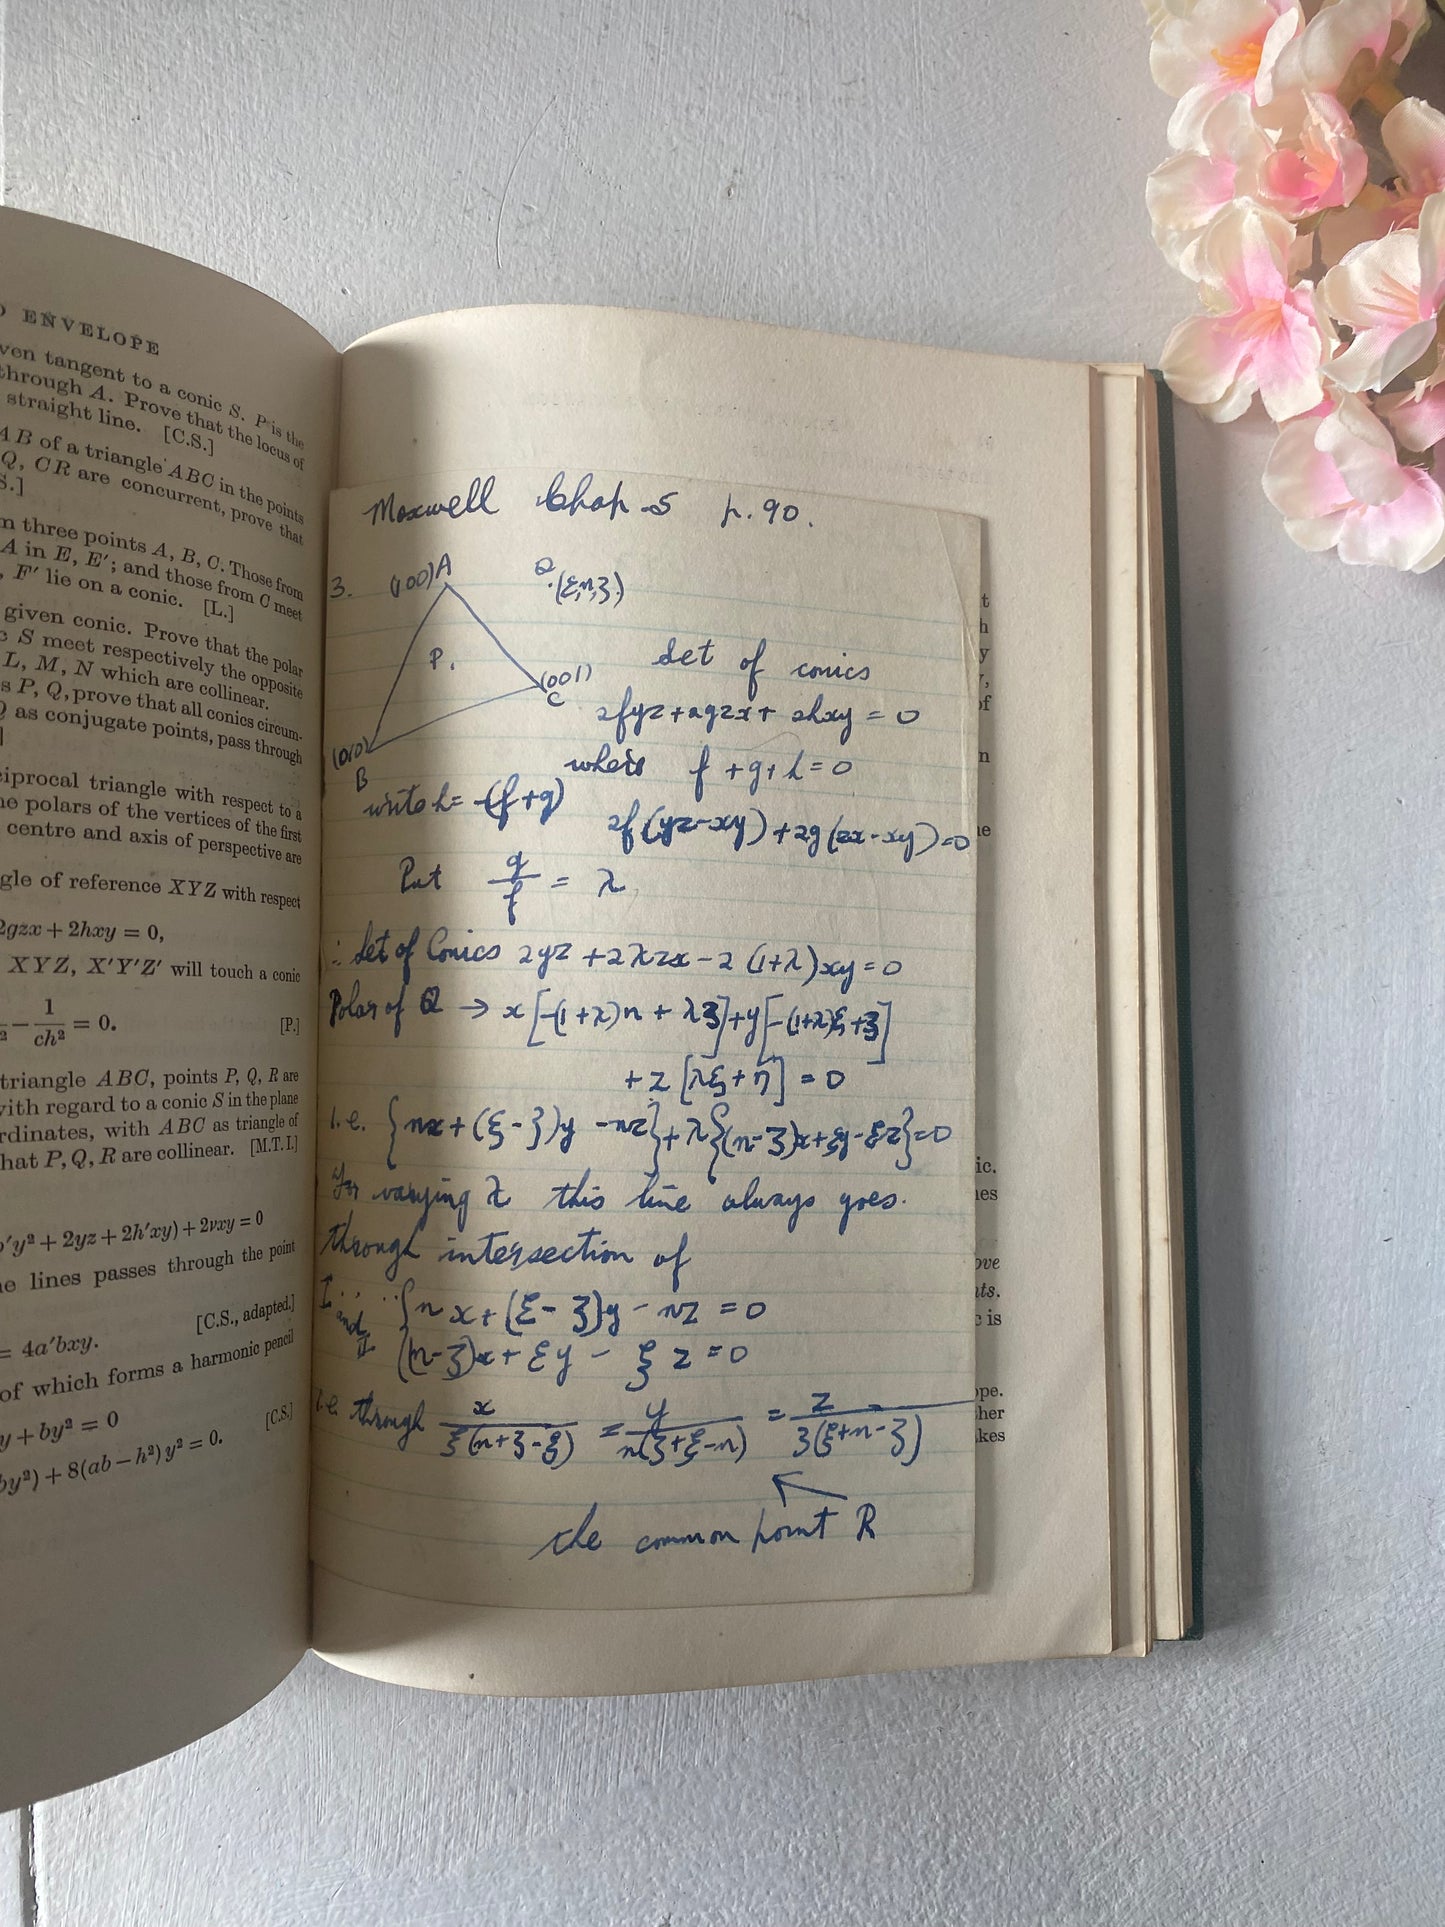 ENVELOPE
ven tangent to a conic S. P is the
through A. Prove that the locus of
straight line. [C.S.]
AB of a triangle ABC in the points
Q, CR are concurrent, prove that
S.]
m three points A, B, C. Those from
A in E, E′; and those from C meet
, F′ lie on a conic. [L.]
given conic. Prove that the polar
c S meet respectively the opposite
L, M, N which are collinear.
s P, Q, prove that all conics circum-
Q as conjugate points, pass through
]
ciprocal triangle with respect to a
he polars of the vertices of the first
centre and axis of perspective are
gle of reference XYZ with respect
2gzx + 2hxy = 0,
XYZ, X′Y′Z′ will touch a conic
− 1/ch² = 0. [P.]
triangle ABC, points P, Q, R are
with regard to a conic S in the plane
rdinates, with ABC as triangle of
hat P, Q, R are collinear. [M.T. I.]
b′y² + 2yz + 2h′xy) + 2νxy = 0
he lines passes through the point
[C.S., adapted.]
= 4a′bxy.
of which forms a harmonic pencil
y + by² = 0
[C.S.]
by²) + 8(ab − h²)y² = 0.
Maxwell Chap 5 p. 90.
3. (100) A Q (ξ,η,ζ)
P.
(001)
C
(010)
B
Set of conics
2fyz + 2gzx + 2hxy = 0
where f + g + h = 0
write h = -(f+g)
2f(yz-xy) + 2g(zx-xy) = 0
Put g/f = λ
∴ Set of Conics 2yz + 2λzx - 2(1+λ)xy = 0
Polar of Q → x[-(1+λ)η + λζ] + y[-(1+λ)ξ + ζ]
+ z[λξ + η] = 0
i.e. {ηx + (ξ-ζ)y - ηz} + λ{(η-ζ)x + ξy - ξz} = 0
For varying λ this line always goes.
through intersection of
I .. .. {ηx + (ξ-ζ)y - ηz = 0
and
II (η-ζ)x + ξy - ξz = 0
i.e. through x/ξ(η+ζ-ξ) = y/η(ζ+ξ-η) = z/ζ(ξ+η-ζ)
the common point R
t
h
y
of
n
ne
ic.
nes
ove
nts.
c is
ope.
her
akes